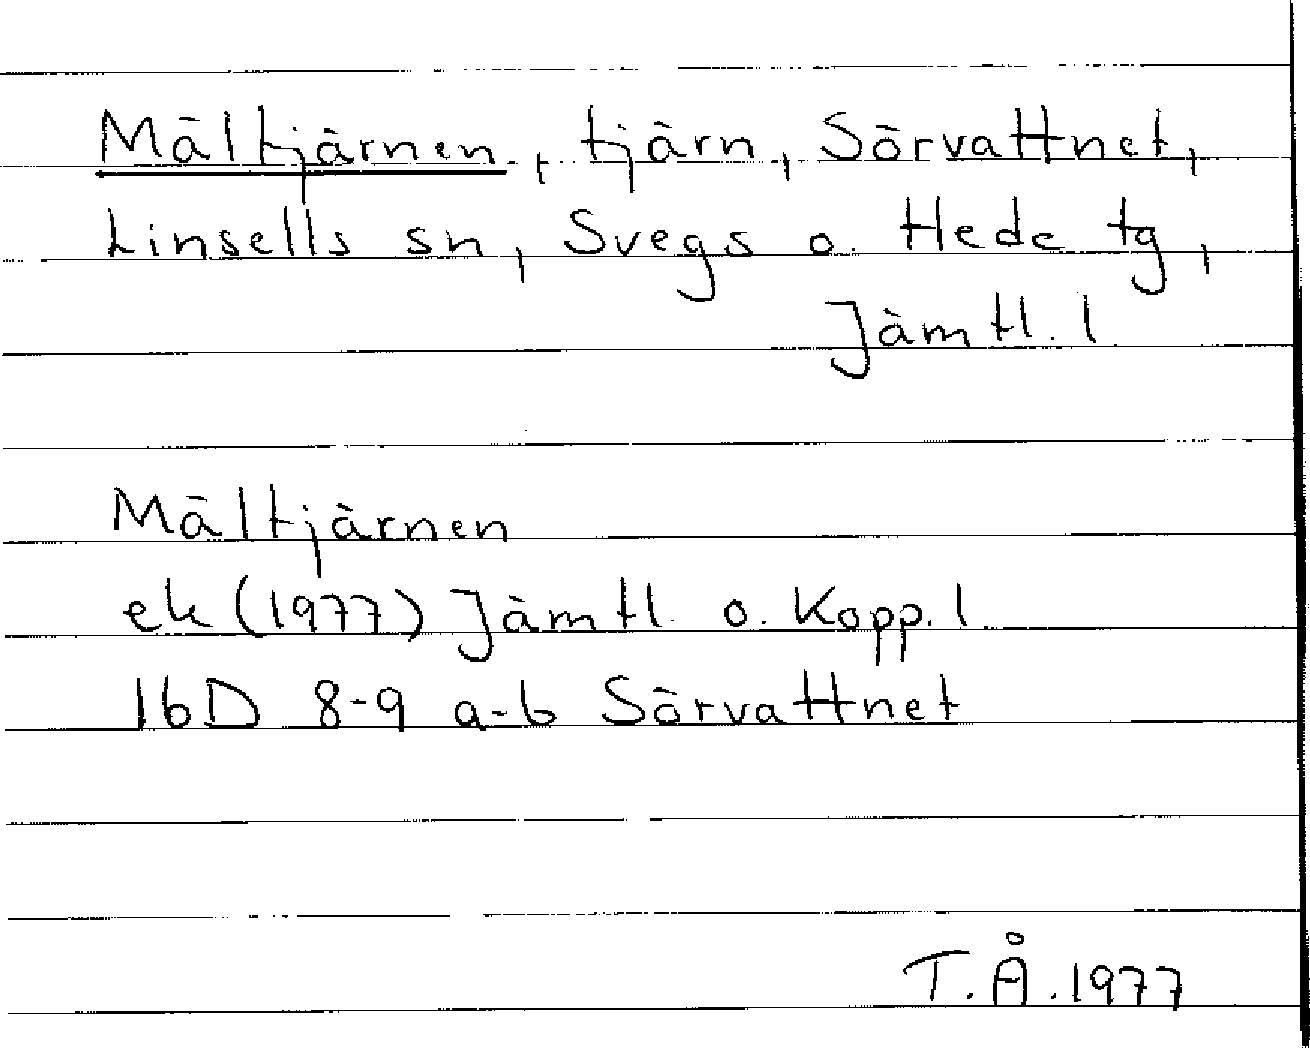 Mältjärnen, tjärn, Sörvattnet,
Linsells sn, Svegs o. Hede tg,
Jämtl. l
Mältjärnen
ek (1977) Jämtl. o. Kopp. l
16D 8-9 a-b Sörvattnet
T.Å. 1977